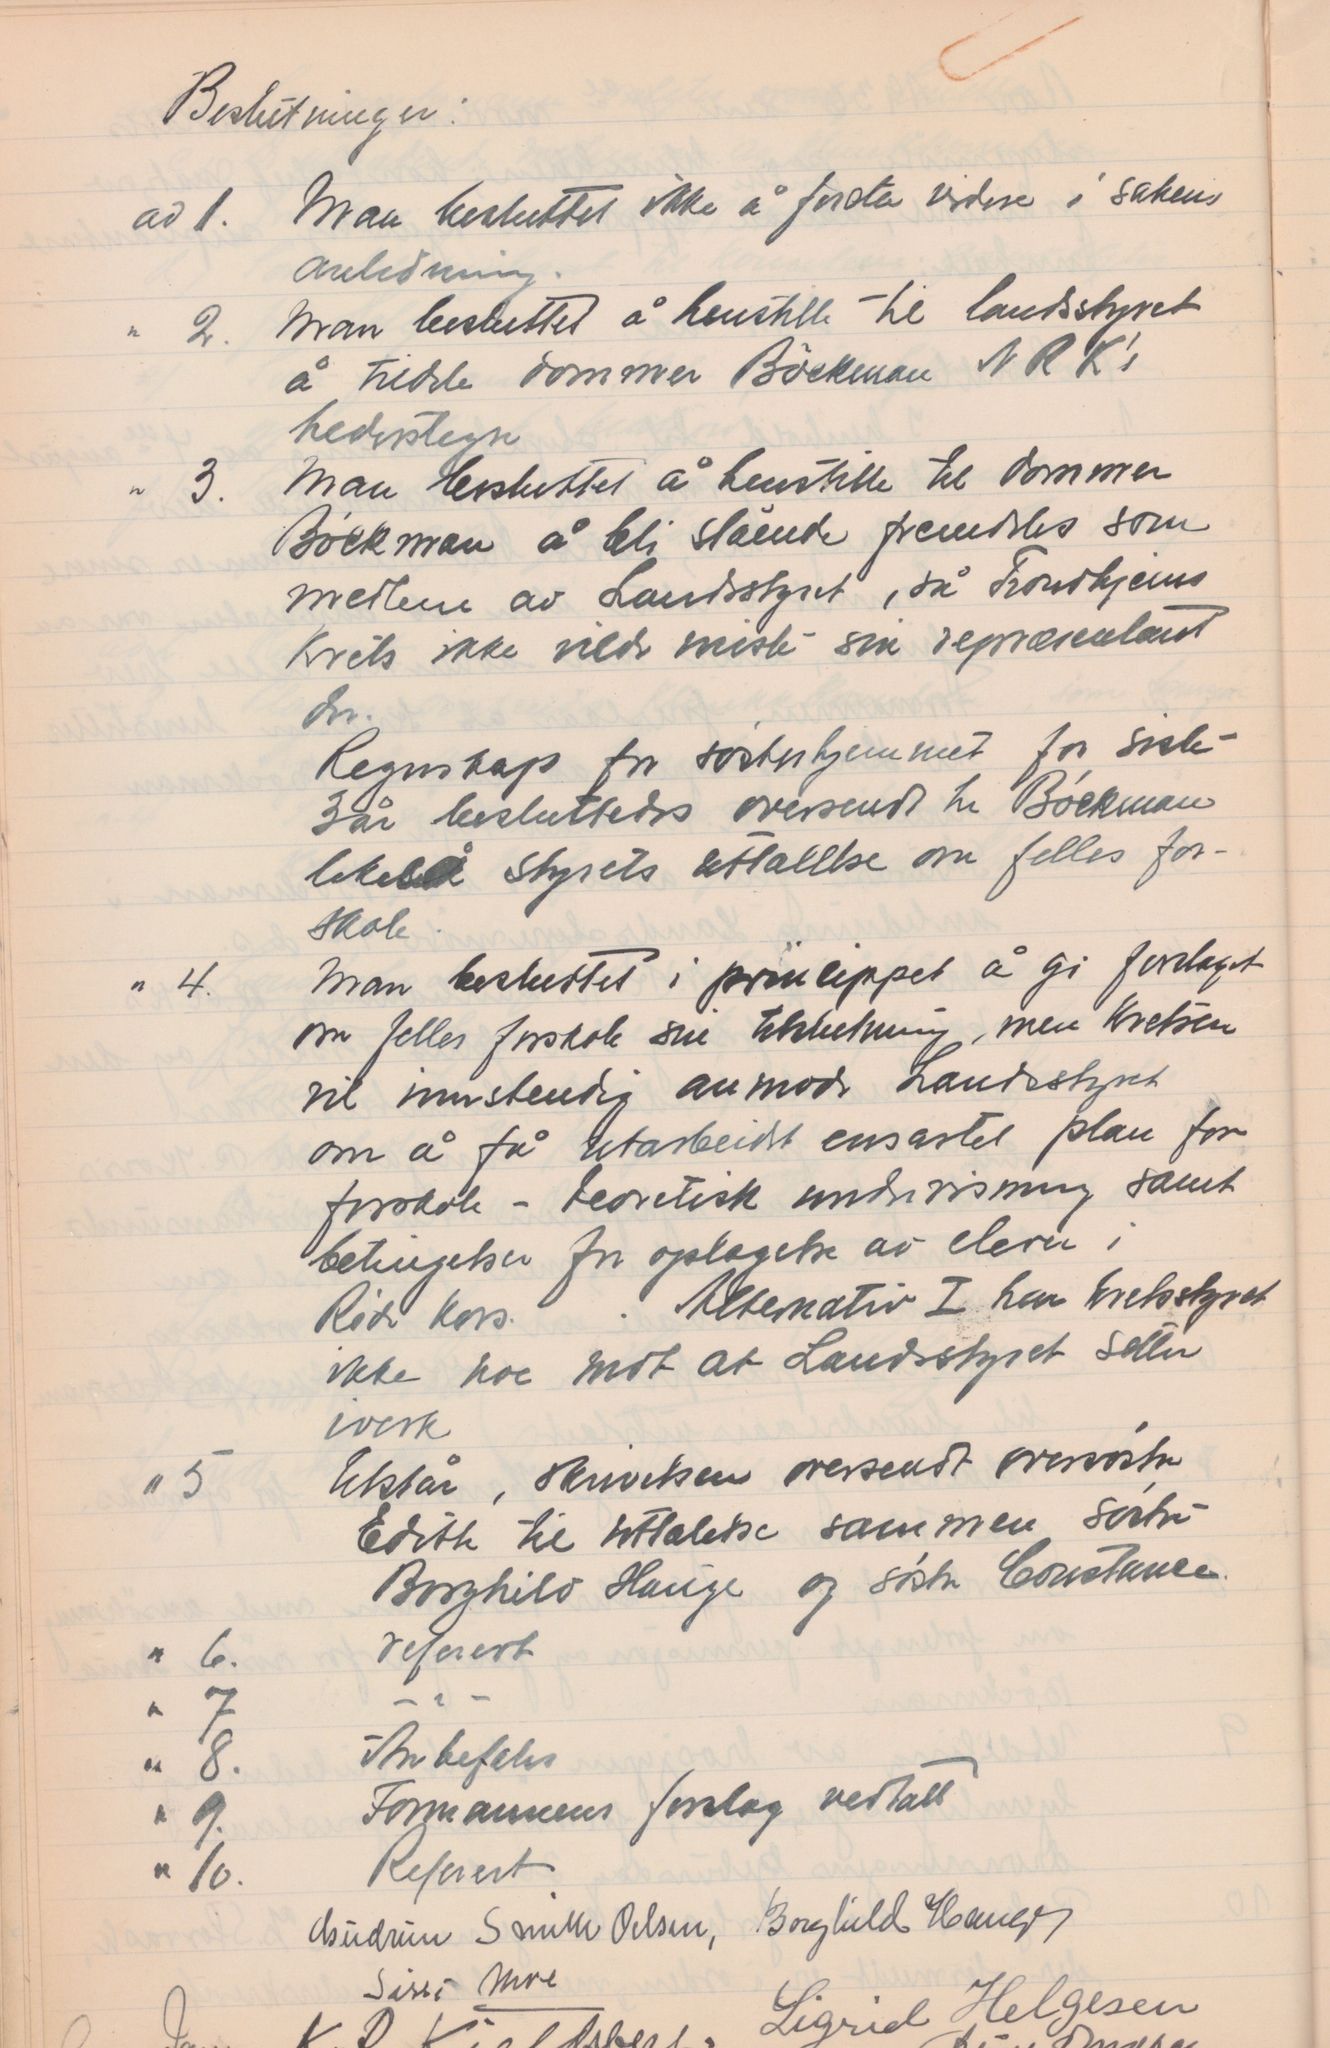 Beslutninger:
ad 1. Man besluttet ikke å foreta videre i sakens
anledning.
" 2. Man besluttet å henstille til landsstyret
å tildele dommer Böckman N R K's
hederstegn
" 3. Man besluttet å henstille til dommer
Böckman å bli stående fremdeles som
medlem av Landsstyret, då Trondhjems
Krets ikke vilde miste sin repræsentant
der.
Regnskap for søsterhjemmet for siste
3 år besluttedes oversendt til Böckman
likeså styrets uttallelse om felles for-
skole.
" 4. Man besluttet i princippet å gi forslaget
om felles forskole sin tilslutning, men Kretsen
vil innstendig anmode Landsstyret
om å få utarbeidet ensartet plan for
forskole - teoretisk undervisning samt
betingelser for optagelse av elever i
Røde Kors. . Alternativ I har kretsstyret
ikke noe mot at Landsstyret setter
iverk
" 5 Utstår, skrivelsen oversendt oversöster
Edith til uttalelse sammen söster
Borghild Hauge og söster Constance.
" 6. referert
" 7 - " -
" 8. Anbefales
" 9. Formannens forslag vedtatt
" 10. Referert
Gudrun Smith Olsen, Borghild Hauge
Sissi Moe
Sigrid Helgesen
K. D.